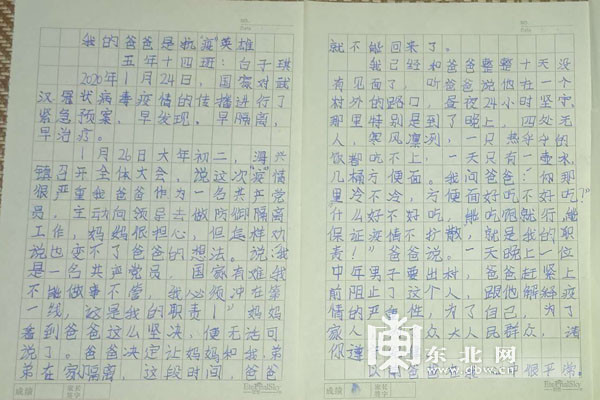 我的爸爸是抗"疫"英雄
五年十四班：白子琪
2020年1月24日，国家对武
汉冠状病毒疫情的传播进行了
紧急预案，早发现。早隔离，
早治疗。
1月26日大年初二，海兴
镇召开全体大会，说这次"疫"情
很严重我爸爸作为一名共产党
员，主动向领导去做防御隔离
工作，妈妈很担心，但怎样劝
说也变不了爸爸的想法。说：我
是一名共产党员，国家有难我
不能做事不管，我必须冲在第
一线，这是我的职责！"妈妈
看到爸爸这么坚决，便无话可
说了。爸爸决定让妈妈和我，弟
弟在家隔离，这段时间，爸爸
就不能回来了。
我已经和爸爸整整十天没
有见面了，听爸爸说他在一个
村外的路口，昼夜24小时坚守，
那里特别是到了晚上，四处无
人，寒风凛冽，一只热乎乎的
饭都吃不上，一天只有一壶水，
几桶方便面。我问爸爸："你那
里冷不冷，方便面好吃不好吃？"
什么好不好吃，能吃饱就行，能
保证疫情不扩散，就是我的职
责！"爸爸说。一天晚上一位
中年男子要出村，爸爸赶紧上
前阻止了这个人，跟他解释疫
情的严重性，为了自己，为了
家人 众大人民群众，请
你谨
爸爸 很平常。
东北网
www.dbw.cn
成绩
家长签字
成绩
家长签字